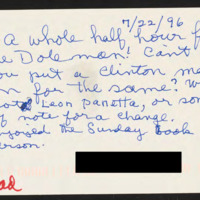 7/22/96
a whole half hour f
e Dole man! Can't
you put a Clinton ma
n for the same? W
Leon Panetta, or som
note for a change.
enjoyed the Sunday book
erson.
ad